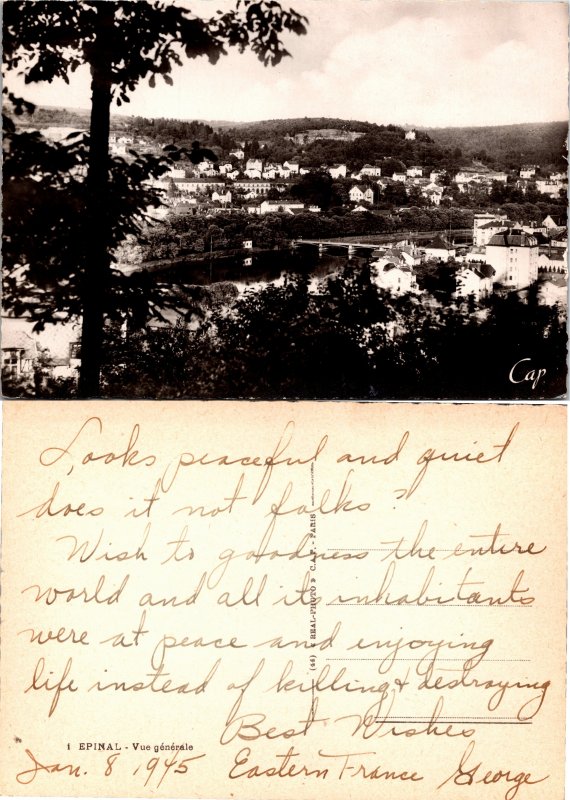 Cap
Looks peaceful and quiet
does it not folks?
Wish to goodness the entire
world and all its inhabitants
were at peace and enjoying
life instead of killing & destroying
Best Wishes
1 EPINAL - Vue générale
Jan. 8 1945 Eastern France George
REAL-PHOTO C.A.P. - PARIS